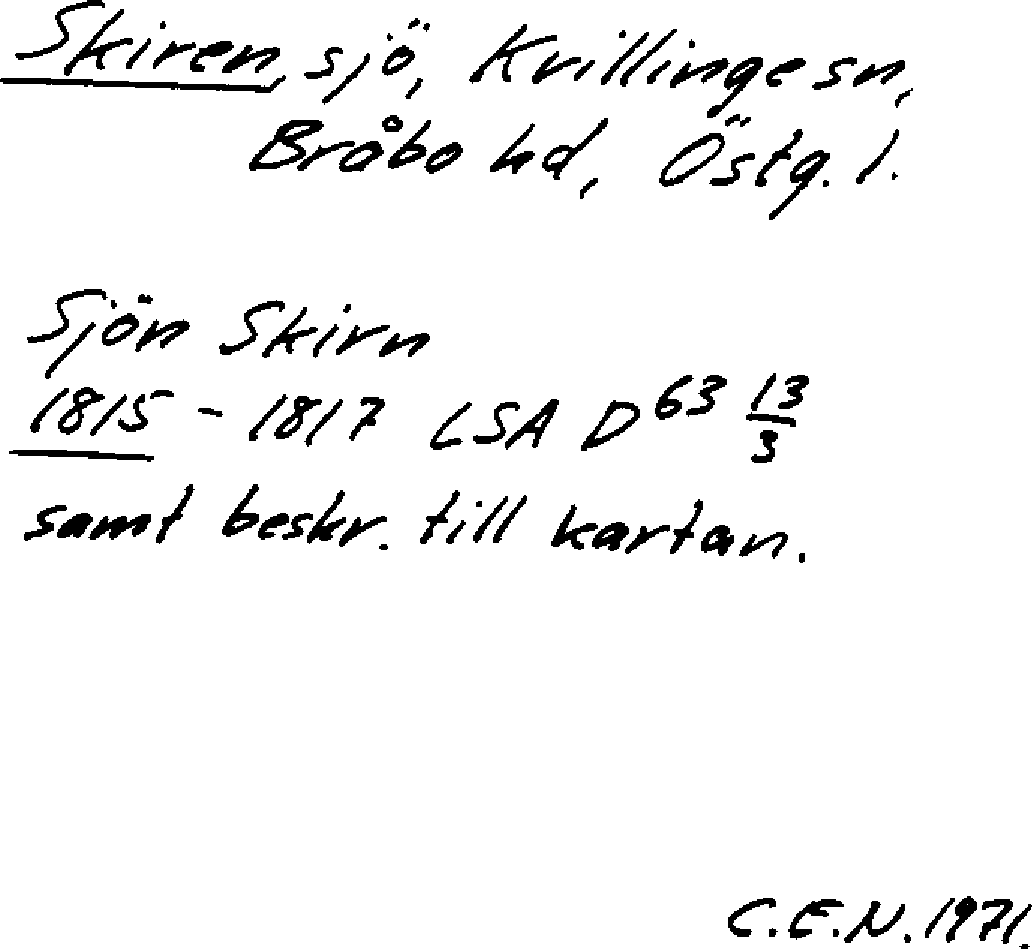 Skiren, sjö, Kvillinge sn,
Bråbo hd, Östg. l.
Sjön Skirn
1815 - 1817 LSA D 63 13/3
samt beskr. till kartan.
C.E.N. 1971.